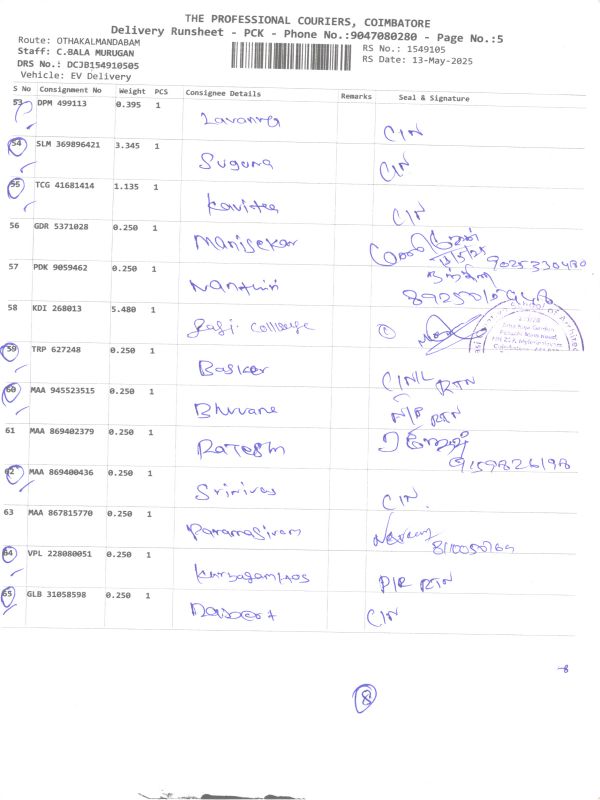 THE PROFESSIONAL COURIERS, COIMBATORE
Delivery Runsheet - PCK - Phone No.:9047080280 - Page No.:5
Route: OTHAKALMANDABAM
Staff: C.BALA MURUGAN
DRS No.: DCJB154910505
Vehicle: EV Delivery
RS No.: 1549105
RS Date: 13-May-2025
S No Consignment No Weight PCS Consignee Details Remarks Seal & Signature
53 DPM 499113 0.395 1 CIN
54 SLM 369896421 3.345 1 Suguna CIN
55 TCG 41681414 1.135 1 CIN
56 GDR 5371028 0.250 1 Manisekar 13/5/25 9025330480
57 PDK 9059462 0.250 1
58 KDI 268013 5.480 1
59 TRP 627248 0.250 1 Basker CIN/L RTN
60 MAA 945523515 0.250 1 Bhuvane N/P RTN
61 MAA 869402379 0.250 1 Ratesh 9159826198
62 MAA 869400436 0.250 1 Srinivas CIN.
63 MAA 867815770 0.250 1 Paramasivam
64 VPL 228080051 0.250 1 P/R RTN
65 GLB 31058598 0.250 1 CIN
-8
8